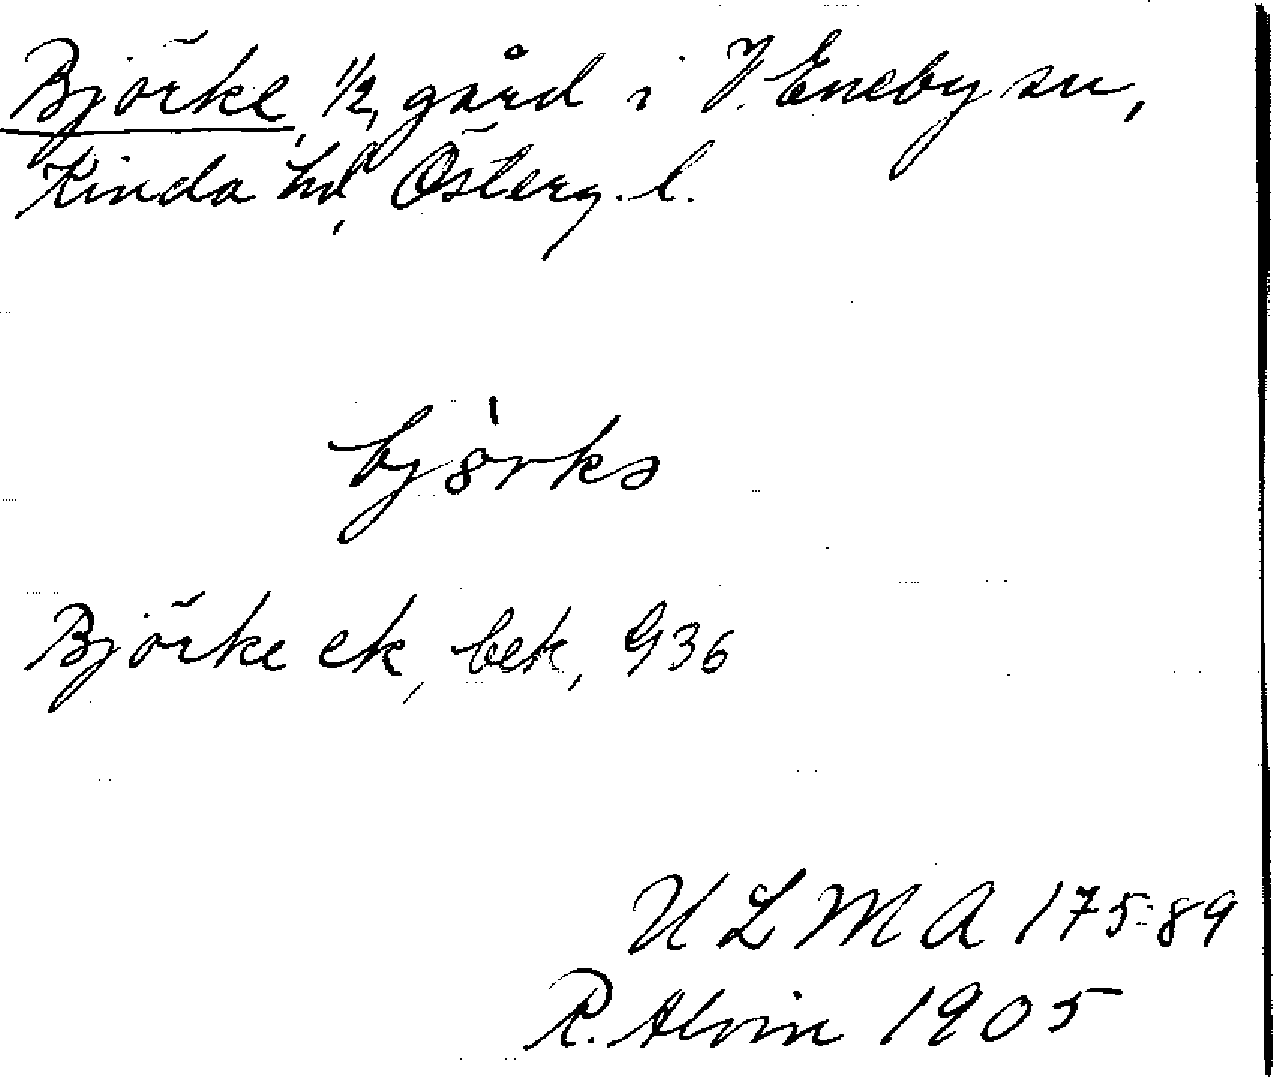 Björke, 1/2 gård i V. Eneby sn,
Kinda hd, Österg. l.
bjørkə
Björke ek, bek, G36
ULMA 175:89
R. Alvin 1905